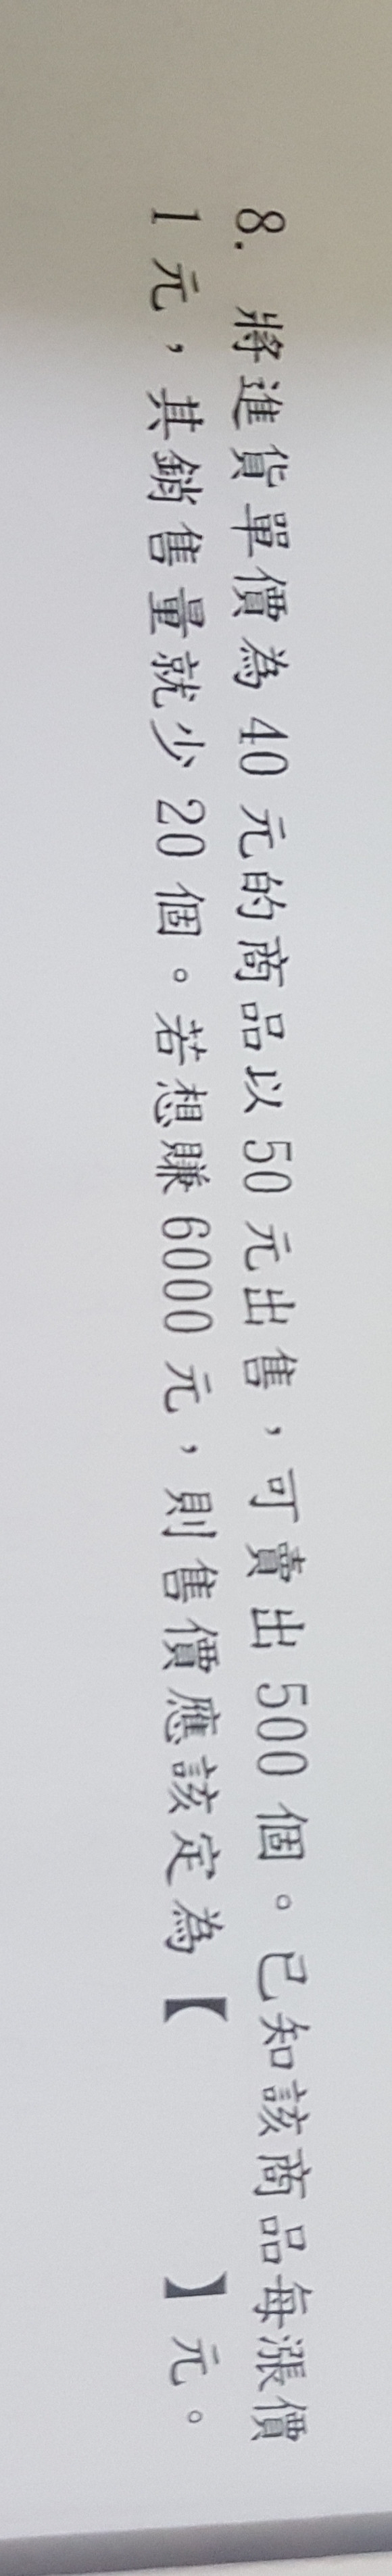 8. 將進貨單價為 40 元的商品以 50 元出售，可賣出 500 個。已知該商品每漲價
1 元，其銷售量就少 20 個。若想賺 6000 元，則售價應該定為【　　　】元。